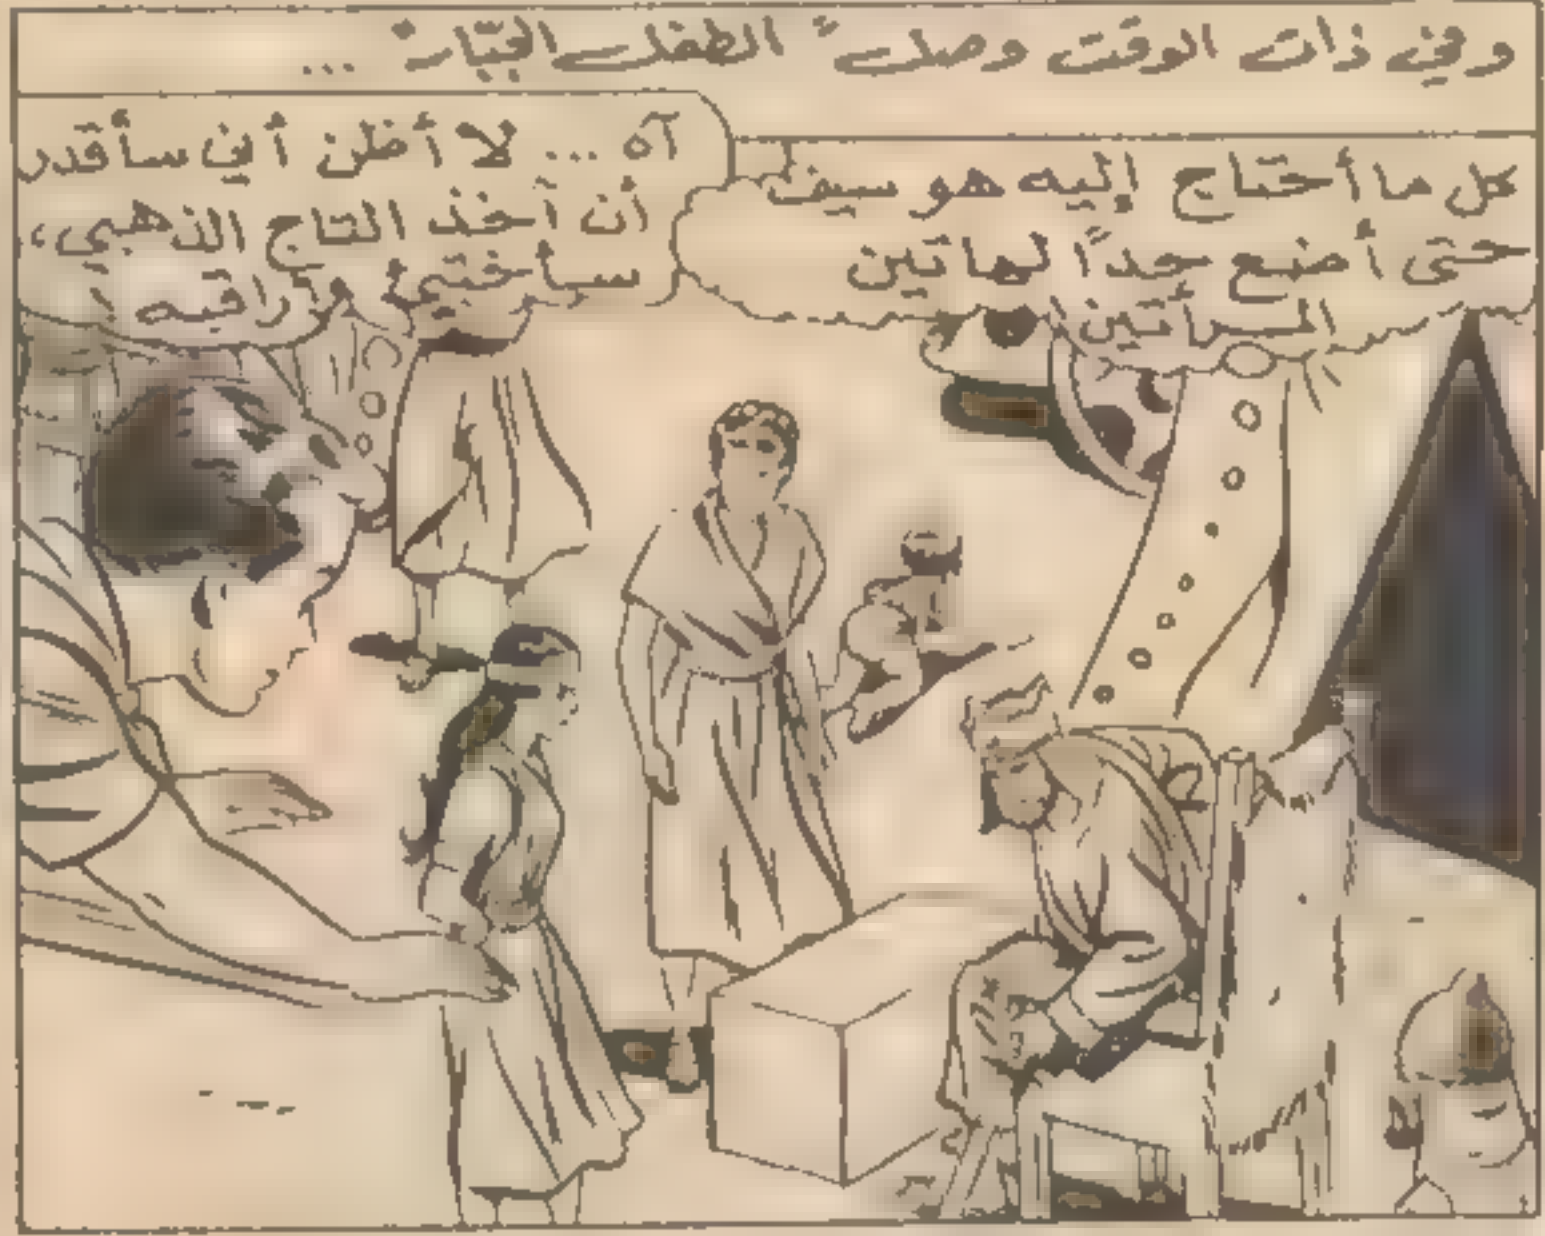 وفي ذات الوقت وصل "الطفل الجبّار" ...
كل ما أحتاج إليه هو سيف
حتى أضع حداً لهاتين
المرأتين
آه ... لا أظن أني سأقدر
أن آخذ التاج الذهبي،
سأختبئ وأراقبه !